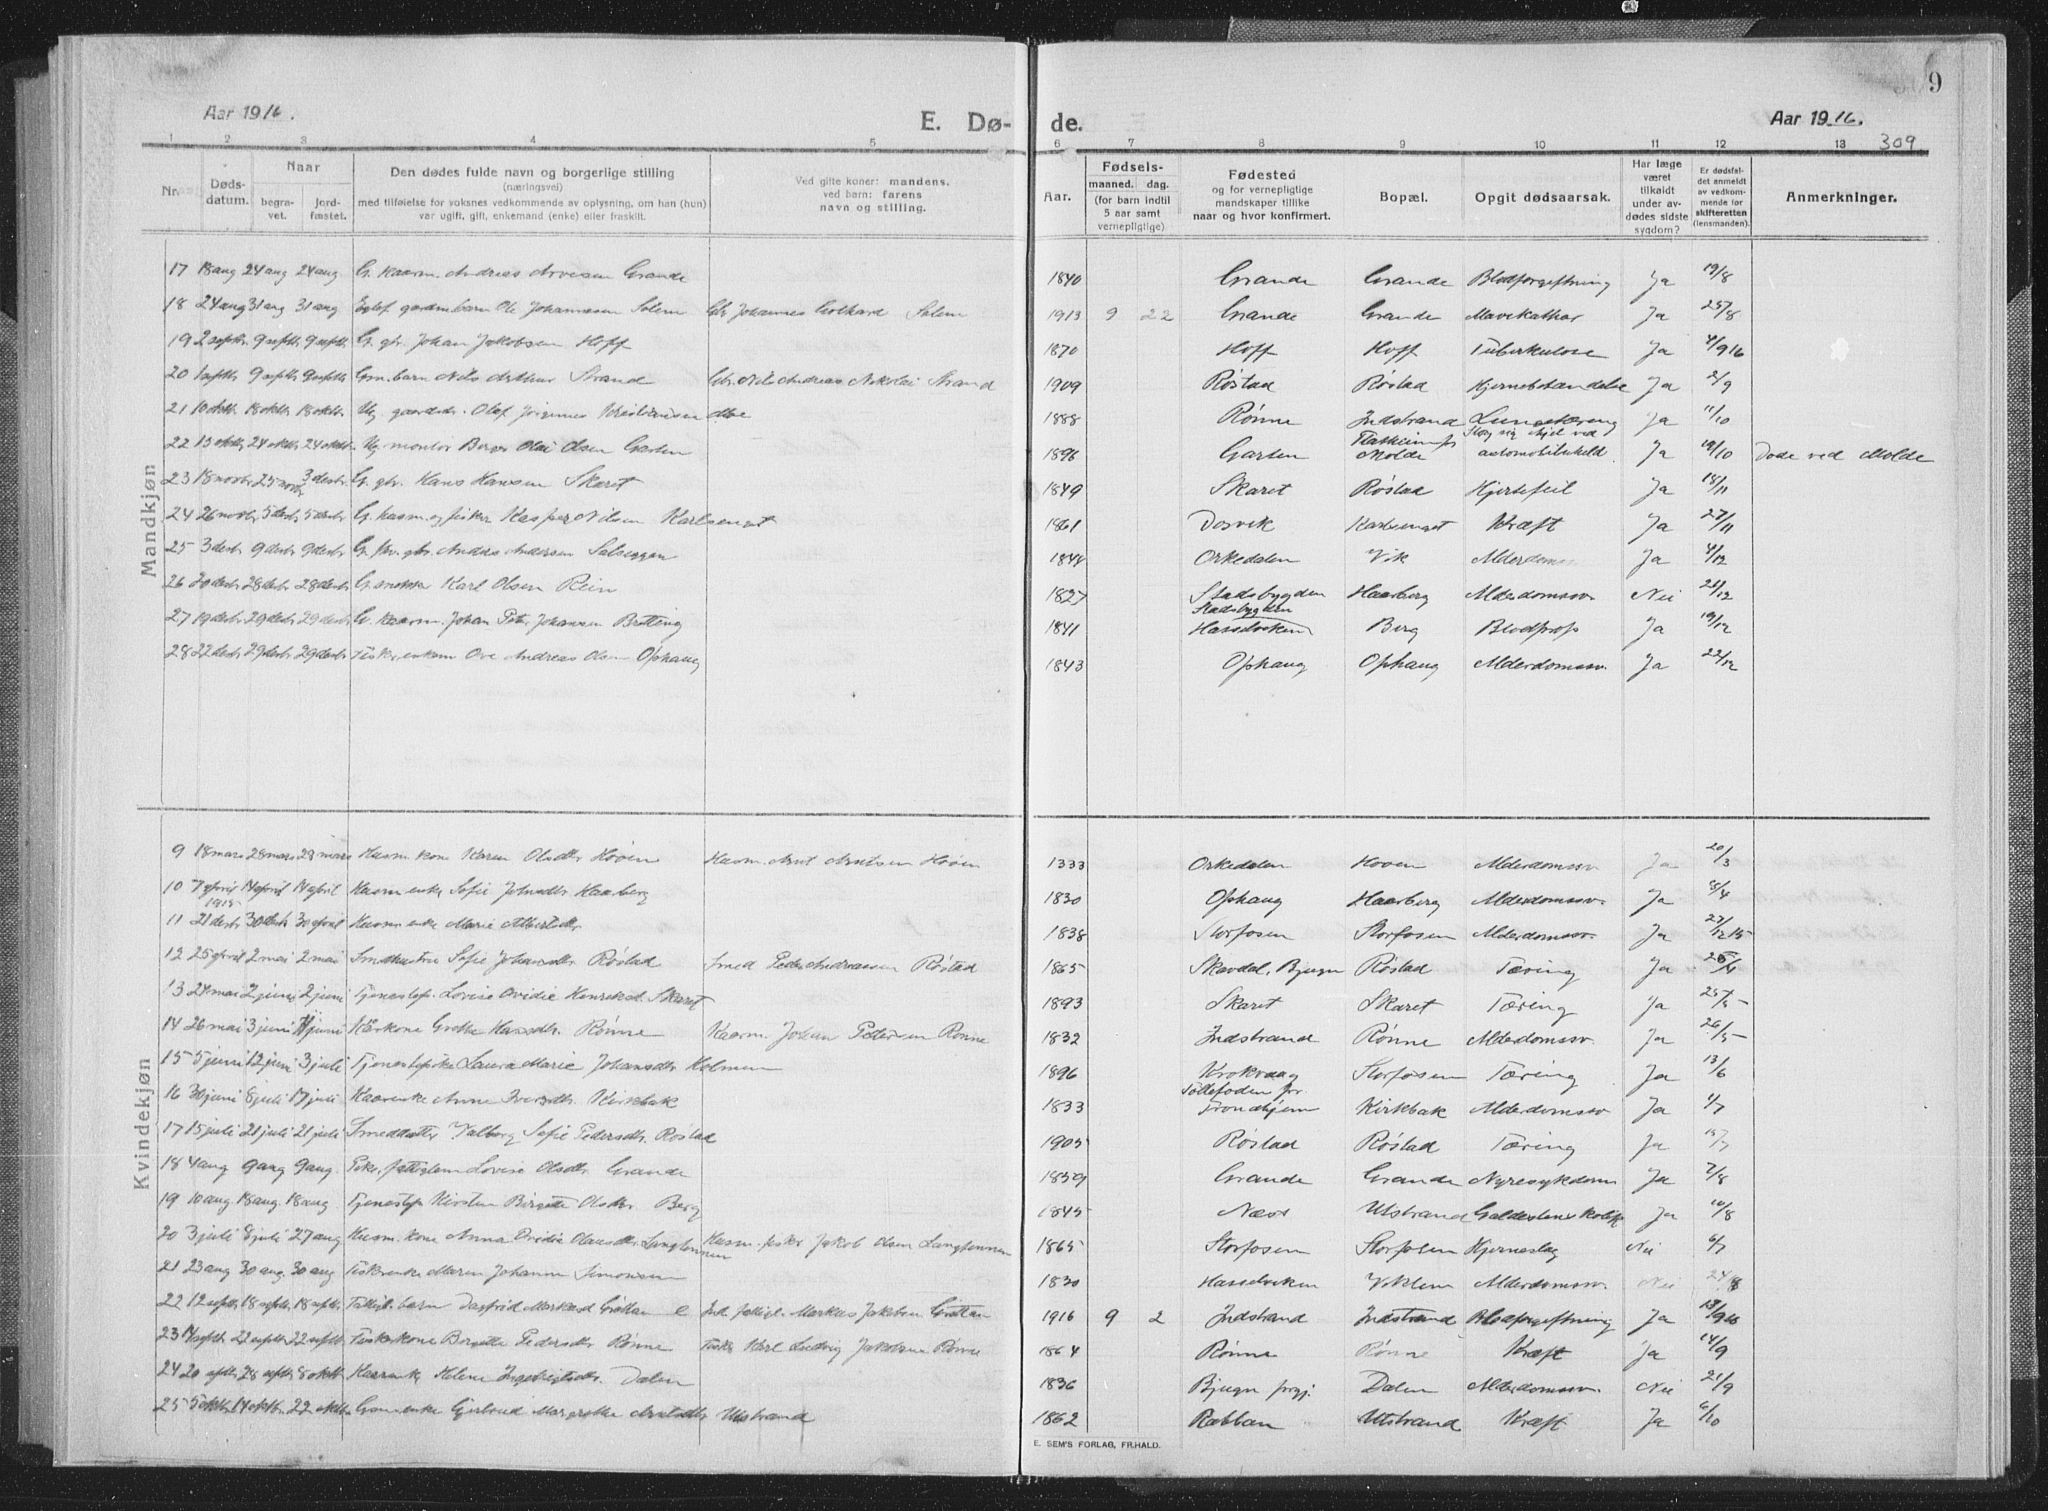 9
Aar 1916.
E. Dø- de.
Aar 1916.
309
1 2 3 4 5 6 7 8 9 10 11 12 13
Nr. Dødsdatum. Naar begravet. jordfæstet. Den dødes fulde navn og borgerlige stilling (næringsvei) med tilføielse for voksnes vedkommende av oplysning, om han (hun) var ugift, gift, enkemand (enke) eller fraskilt. Ved gifte koner: mandens. ved barn: farens navn og stilling. Aar. Fødsels- maaned. dag. (for barn indtil 5 aar samt vernepligtige) Fødested og for vernepligtige mandskaper tillike naar og hvor konfirmert. Bopæl. Opgit dødsaarsak. Har læge været tilkaldt under avdødes sidste sygdom? Er dødsfaldet anmeldt av vedkommende før skifteretten (lensmanden). Anmerkninger.
Mandkjøn
17 18 aug 24 aug 24 aug G. kaarm. Andreas Arvesen Grande 1840 Grande Grande Blodforgiftning Ja 19/8
18 24 aug 31 aug 31 aug gaardm. barn Ole Johannesen Solem Gbr Johannes Solem 1913 9 22 Grande Grande Mavekathar Ja 25/8
19 2 septb. 9 septb. 9 septb. G. gbr. Johan Jakobsen Hoff 1870 Hoff Hoff Tuberkulose Ja 4/9 16
20 1 septb 9 septb. 9 septb. Gm. barn Nils Arthur Strand Gbr. Nils Andreas Nikolai Strand 1909 Røstad Røstad Hjernebetændelse Ja 2/9
21 10 oktb. 18 oktb. 18 oktb. Ug. gaardbr. Olaf Jørginus Kristiansen 1888 Rønne Indstrand Lungetæring Ja 11/10
22 13 oktb. 24 oktb. 24 oktb. Ug. montør Birger Olai Olsen Garten 1896 Garten Molde Slog sig ihjel ved automobiluheld Ja 19/10 Døde ved Molde
23 18 novbr. 25 novbr. 3 desbr. G. gbr. Hans Hansen Skaret 1849 Skaret Røstad Hjertefeil Ja 18/11
24 26 novbr. 5 desbr 5 desbr G. husm. og fisker Kasper Nilsen Karlsenget 1861 Dosvik Karlsenget Kræft Ja 27/11
25 3 desbr 9 desbr 9 desbr G. fhv. gbr. Anders Andersen Salseggen 1844 Orkedalen Vik Alderdomssv Ja 4/12
26 20 desbr. 28 desbr. 28 desbr. G. snekker Karl Olsen Rein 1827 Stadsbygden Haarberg Alderdomssv. Nei 21/12
27 19 desbr. 29 desbr. 29 desbr. G. kaarm. Johan Peter Johansen Brætting 1841 Stadsbygden Hasselviken Berg Blodprop Ja 19/12
28 22 desbr 29 desbr. 29 desbr. Fisker, enkem Ove Andreas Olsen Ophaug 1843 Ophaug Ophaug Alderdomssv. Ja 22/12
Kvindekjøn
9 18 mars 28 mars 28 mars Husm. kone Karen Olsdtr. Hoven Husm. Arnt Arntsen Hoven 1833 Orkedalen Hoven Alderdomssv Ja 20/3
10 7 april 14 april 14 april Husm. enke Sofie Johnsdtr. Haarberg 1830 Ophaug Haarberg Alderdomssv. Ja 15/4
11 1915 21 desb 30 desb 30 april Husm. enke Marie Albertsdtr 1838 Storfosen Storfosen Alderdomssv. Ja 27/12 15
12 25 april 2 mai 2 mai Smedhustru Sofie Johansdtr. Røstad Smed Peder Andreassen Røstad 1865 Skavdal, Bjugn Røstad Tæring Ja 25/4
13 24 mai 2 juni 2 juni Tjenestep. Lovise Ovidie Henriksd. Skaret 1893 Skaret Skaret Tæring Ja 25/5
14 26 mai 3 juni juni Kårkone Grethe Hansdtr. Rønne Kaarm. Johan Petersen Rønne 1832 Indstrand Rønne Alderdomssv. Ja 26/5
15 5 juni 12 juni 3 juli Tjenestepike Laura Marie Johansdtr Holmen 1896 Krokvaag Storfosen Tæring Ja 13/6
16 30 juni 8 juli 17 juli Kaarenke Anne Iversdtr. Kirkbak 1833 Tolleboden pr Trondhjem Kirkbak Alderdomssv Ja 1/7
17 15 juli 21 juli 21 juli Smeddatter Valborg Sofie Pedersdtr. Røstad 1905 Røstad Røstad Tæring Ja 15/7
18 4 aug 9 aug 9 aug. Pike, fattiglem Lovise Olsdtr. Grande 1839 Grande Grande Nyresykdom Ja 7/8
19 10 aug 18 aug. 18 aug. Tjenestep. Kirsten Birgitte Olsdtr Berg 1845 Næss Utstrand Galdestens kolik Ja 10/8
20 3 juli 8 juli 27 aug Husm. kone Anna Ovidie Olausdtr. Langtennen Husm. fisker Jakob Olsen Langtennen 1865 Storfosen Storfosen Hjerneslag Nei 6/7
21 23 aug 30 aug. 30 aug Fiskerenke Maren Johanna Simonsen 1830 Hasselviken Viklem Alderdomssv. Nei 24/8
22 12 septb. 18 septb. 18 septb. Fattigl. barn Dagfrid Markusd Grøttan Ind. fattigl. Markus Jakobsen Grøttan 1916 9 2 Indstrand Indstrand Blodforgiftning Ja 13/9 16
23 14 septb 22 septb 22 septb. Fiskerkone Bergitte Pedersdtr. Rønne Fisker Karl Ludvig Jakobsen Rønne 1864 Rønne Rønne Kræft Ja 14/9
24 20 septb 28 septb 8 oktb. Kaarenke Helene Ingebrigtsdtr. Dalen 1836 Bjugn prgj. Dalen Alderdomssv. Nei 21/9
25 5 oktb. 14 oktb. 22 oktb. Gaardm. enke Gjertrud Margrethe Arntsdtr Utstrand 1862 Rabban Utstrand Kræft Ja 6/10
E. SEM'S FORLAG, FR.HALD.